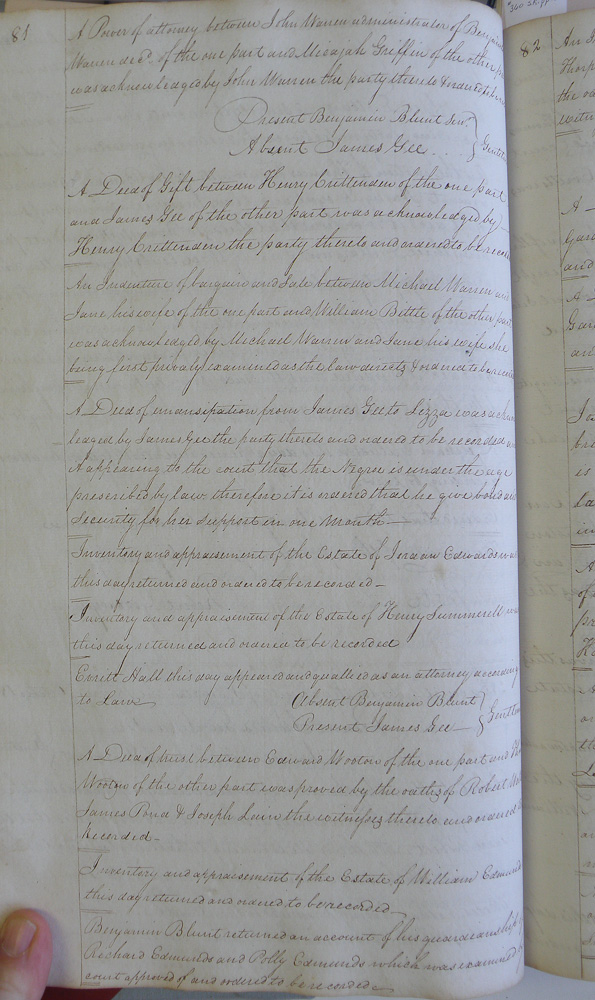 81
A Power of attorney between John Warren administrator of Benjamin
Warren decd. of the one part and Micajah Griffin of the other
was acknowledged by John Warren the party thereto & ordered to be
Present Benjamin Blunt Senr.
Absent James Gee
A Deed of Gift between Henry Crittenden of the one part
and James Gee of the other part was acknowledged by
Henry Crittenden the party thereto and ordered to be
An Indenture of bargain and Sale between Michael Warren and
Jane his wife of the one part and William Bittle of the other part
was acknowledged by Michael Warren and Jane his wife she
being first privaly examined as the law directs & ordered to be
A Deed of emancipation from James Gee to Lizza was
ledged by James Gee the party thereto and ordered to be recorded
it appearing to the court that the Negroe is under the age
prescribed by law therefore it is ordered that he give bond and
Security for her Support in one Month
Inventory and appraisement of the Estate of Jordan Edwards was
this day returned and ordered to be recorded
Inventory and appraisement of the Estate of Henry Summerell
this day returned and ordered to be recorded
Everett Hall this day appeared and qualified as an attorney according
to Law
Absent Benjamin Blunt
Present James Gee
A Deed of trust between Edward Wooton of the one part and
Wooton of the other part was proved by the oaths of Robert
James Bird & Joseph Lain the witnesses thereto and ordered
Recorded
Inventory and appraisement of the Estate of William Edmunds
this day returned and ordered to be recorded
Benjamin Blunt returned an account of his guardianship
Richard Edmunds and Polly Edmunds which was examined
count approved of and ordered to be recorded
82